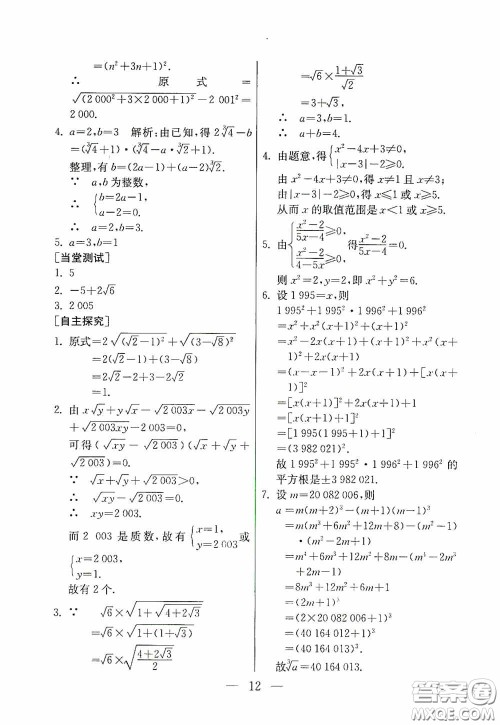 =(n²+3n+1)².
∴ 原式=
√(2 000²+3×2 000+1)²-2 001²=
2 000.
4. a=2,b=3 解析:由已知,得2∛4-b
=(∛4+1)·(∛4-a)·∛2.
整理,有b=(2a-1)+(a-2)∛2.
∵ a,b为整数,
∴ {b=2a-1, a-2=0.
∴ a=2,b=3.
5. a=3,b=1
[当堂测试]
1. 5
2. -5+2√6
3. 2 005
[自主探究]
1. 原式=2√(√2-1)²+√(3-√8)²
=2(√2-1)+(3-√8)
=2√2-2+3-2√2
=1.
2. 由x√y+y√x-√2 003x-√2 003y
+√2 003xy=2 003,
可得(√xy-√2 003)(√x+√y+
√2 003)=0.
∵ √x+√y+√2 003>0,
∴ √xy-√2 003=0.
∴ xy=2 003.
而2 003是质数,故有{x=1, y=2 003或
{x=2 003, y=1.
故有2个.
3. ∵ √6×√1+√4+2√3
=√6×√1+(1+√3)
=√6×√(4+2√3)/2
=√6×(1+√3)/√2
=3+√3,
∴ a=3,b=1.
∴ a+b=4.
4. 由题意,得{x²-4x+3≠0, |x-3|-2≥0.
由x²-4x+3≠0,得x≠1且x≠3;
由|x-3|-2≥0,得x≤1或x≥5.
从而x的取值范围是x<1或x≥5.
5. 由{(x²-2)/(5x-4)≥0, (x²-2)/(4-5x)≥0, 得(x²-2)/(5x-4)=0.
则x²=2,y=2,即x²+y²=6.
6. 设1 995=x,则
1 995²+1 995²·1 996²+1 996²
=x²+x²(x+1)²+(x+1)²
=x²-2x(x+1)+(x+1)²+2x(x+1)+x²(x+1)²
=(x-x-1)²+2x(x+1)+[x(x+1)]²
=[x(x+1)]²+2x(x+1)+1
=[x(x+1)+1]²
=[1 995(1 995+1)+1]²
=(3 982 021)².
故1 995²+1 995²·1 996²+1 996²的
平方根是±3 982 021.
7. 设m=20 082 006,则
a=m(m+2)³-(m+1)(m-1)³
=m(m³+6m²+12m+8)-(m³-
(m²-2m+1)
=8m³+12m²+6m+1
=(2m+1)³
=(2×20 082 006+1)³
=(40 164 012+1)³
=(40 164 013)³.
故∛a=40 164 013.
— 12 —
答案圈
MXQE.COM